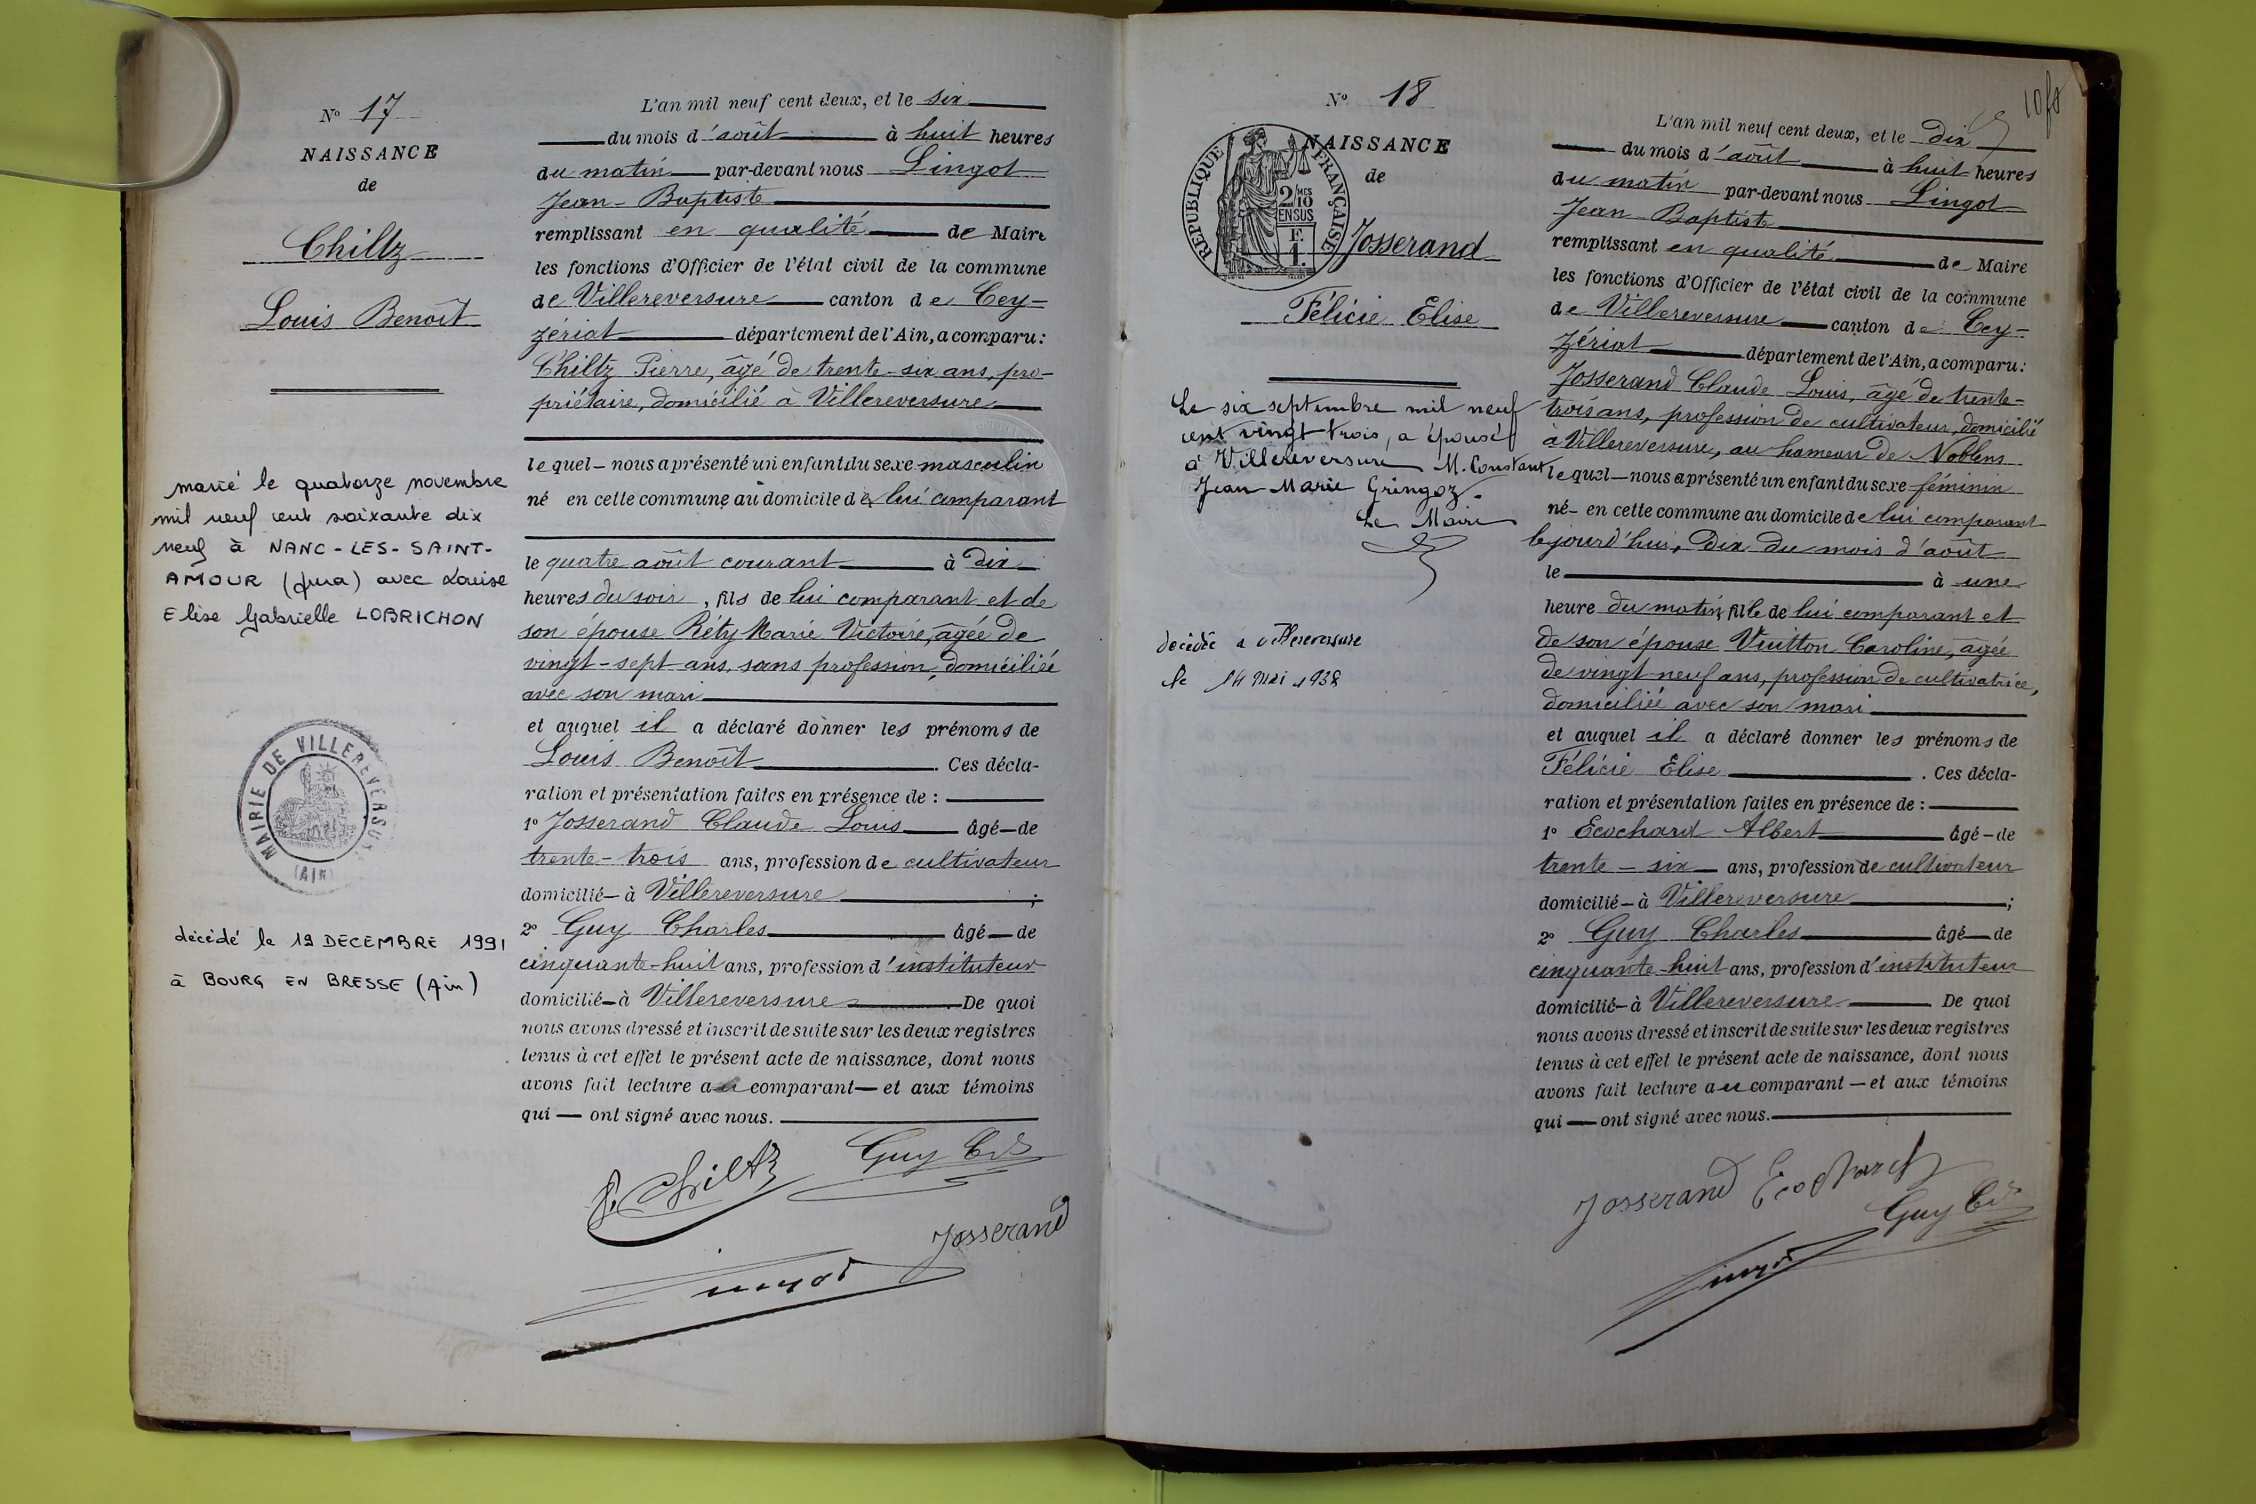 N° 17
NAISSANCE
de
Chiltz
Louis Benoît
marié le quatorze novembre
mil neuf cent soixante dix
neuf à NANC-LES-SAINT-
AMOUR (Jura) avec Louise
Elise Gabrielle LOBRICHON
MAIRIE DE VILLEREVERSURE
(AIN)
décédé le 19 DECEMBRE 1991
à BOURG EN BRESSE (Ain)
L'an mil neuf cent deux, et le six
du mois d'août à huit heures
du matin par-devant nous Lingot
Jean-Baptiste
remplissant en qualité de Maire
les fonctions d'Officier de l'état civil de la commune
de Villereversure canton de Cey=
zériat département de l'Ain, a comparu :
Chiltz Pierre, âgé de trente-six ans, pro-
priétaire, domicilié à Villereversure
lequel - nous a présenté un enfant du sexe masculin
né en cette commune au domicile de lui comparant
le quatre août courant à dix
heures du soir, fils de lui comparant et de
son épouse Réty Marie Victoire, âgée de
vingt-sept ans, sans profession, domiciliée
avec son mari
et auquel il a déclaré donner les prénoms de
Louis Benoît. Ces décla-
ration et présentation faites en présence de :
1° Josserand Claude Louis âgé - de
trente-trois ans, profession de cultivateur
domicilié - à Villereversure ;
2° Guy Charles âgé - de
cinquante-huit ans, profession d'instituteur
domicilié - à Villereversure. De quoi
nous avons dressé et inscrit de suite sur les deux registres
tenus à cet effet le présent acte de naissance, dont nous
avons fait lecture au comparant - et aux témoins
qui - ont signé avec nous.
P. Chiltz Guy Cs
Josserand
Lingot
N° 18
NAISSANCE
de
RÉPUBLIQUE FRANÇAISE
2/10
EN SUS
F.
1.
Josserand
Félicie Elise
Le six septembre mil neuf
cent vingt trois, a épousé
à Villereversure M. Constant
Jean Marie Gringoz.
Le Maire
décédée à Villereversure
le 14 mai 1938
10
L'an mil neuf cent deux, et le dix
du mois d'août à huit heures
du matin par-devant nous Lingot
Jean Baptiste
remplissant en qualité de Maire
les fonctions d'Officier de l'état civil de la commune
de Villereversure canton de Cey=
zériat département de l'Ain, a comparu :
Josserand Claude Louis, âgé de trente-
trois ans, profession de cultivateur, domicilié
à Villereversure, au hameau de Noblens
lequel - nous a présenté un enfant du sexe féminin
né - en cette commune au domicile de lui comparant
cejourd'hui, dix du mois d'août
le à une
heure du matin, fille de lui comparant et
de son épouse Vuitton Caroline, âgée
de vingt-neuf ans, profession de cultivatrice,
domiciliée avec son mari
et auquel il a déclaré donner les prénoms de
Félicie Elise. Ces décla-
ration et présentation faites en présence de :
1° Ecochard Albert âgé - de
trente-six ans, profession de cultivateur
domicilié - à Villereversure ;
2° Guy Charles âgé - de
cinquante-huit ans, profession d'instituteur
domicilié - à Villereversure De quoi
nous avons dressé et inscrit de suite sur les deux registres
tenus à cet effet le présent acte de naissance, dont nous
avons fait lecture au comparant - et aux témoins
qui - ont signé avec nous.
Josserand Ecochard
Guy Cs
Lingot